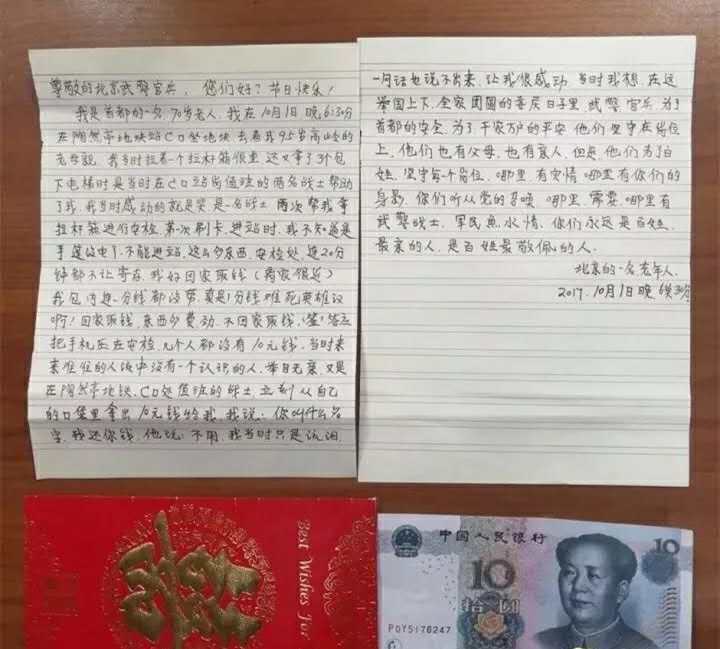 尊敬的北京武警官兵，您们好？节日快乐！
我是首都的一名70岁老人，我在10月1日晚6:30分
在陶然亭地铁站C口坐地铁去看我95岁高龄的
老母亲，我当时拉着一个拉杆箱很重，还又拿了3个包
下电梯时是当时在C口站岗值班的两名战士帮助
了我，我当时感动的就是哭是一名战士两次帮我拿
拉杆箱进行安检，第一次刷卡，进站时，我不知道是
手没电了，不能进站，这么多东西，安检处，连20分
钟都不让寄存，我好回家取钱（离家很近）
我包内连一分钱都没带，真是1分钱难死英雄汉
啊！回家取钱，东西多费劲，不回家取钱，
把手机压在安检，几个人都没有10元钱，当时来
来往往的人流中没有一个认识的人，举目无亲，又是
在陶然亭地铁，C口处值班的战士，立刻从自己
的口袋里拿出10元钱给我，我说：你叫什么名
字，我还你钱，他说：不用，我当时只是流泪
一句话也说不出来，让我很感动，当时我想，在这
举国上下，全家团圆的喜庆日子里，武警官兵为了
首都的安全，为了千家万户的平安，他们坚守在岗位
上，他们也有父母，也有亲人，但是，他们为了百
姓，坚守每个岗位，哪里有灾情，哪里有你们的
身影，你们听从党的召唤，哪里需要，哪里有
武警战士，军民鱼水情，你们永远是百姓
最亲的人，是百姓最敬佩的人。
北京的一名老年人
2017.10月1日晚6点30分
Best Wishes For
中国人民银行
10
10
拾圆
PDY5176247